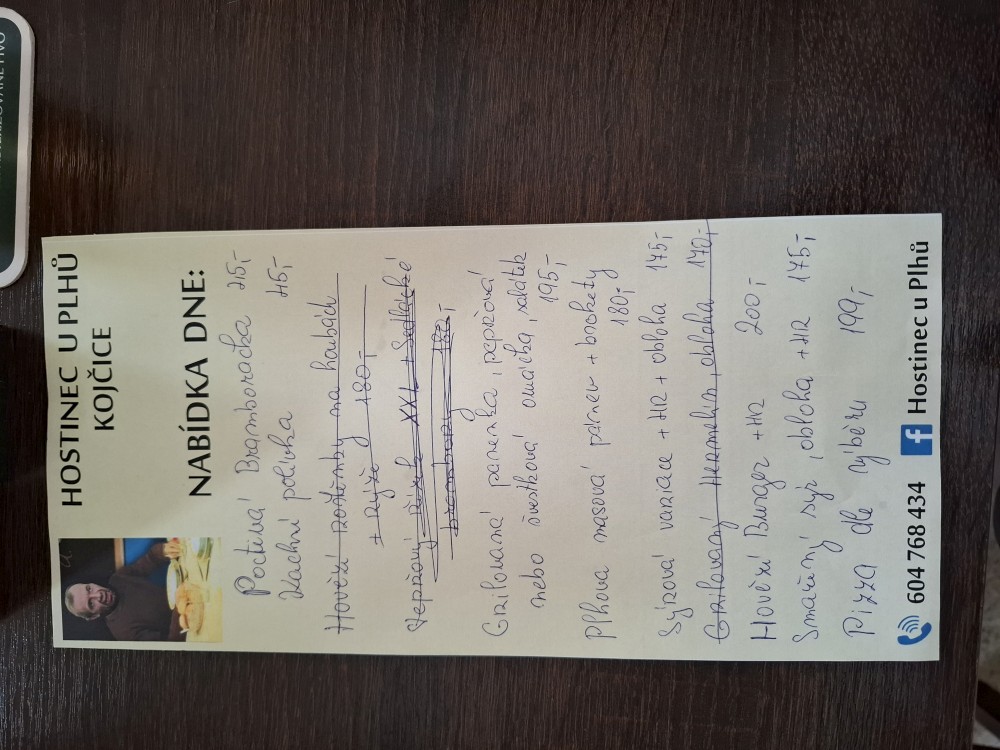 HOSTINEC U PLHŮ
KOJČICE
NABÍDKA DNE:
Poctivá Bramboračka 45,-
Kachní polívka 45,-
Hovězí roštěnky na houbách
+ rýže 180,-
Vepřový řízek XXL + Sedlácké
brambory 180,-
Grilovaná panenka, pepřová
nebo švestková omáčka, salátek
195,-
Plhova masová pánev + brokety
180,-
Sýrová variace + HR + obloha 175,-
Grilovaný Hermelín, obloha 170,-
Hovězí Burger + HR 200,-
Smažený sýr, obloha + HR 175,-
Pizza dle výběru 199,-
604 768 434 f Hostinec u Plhů